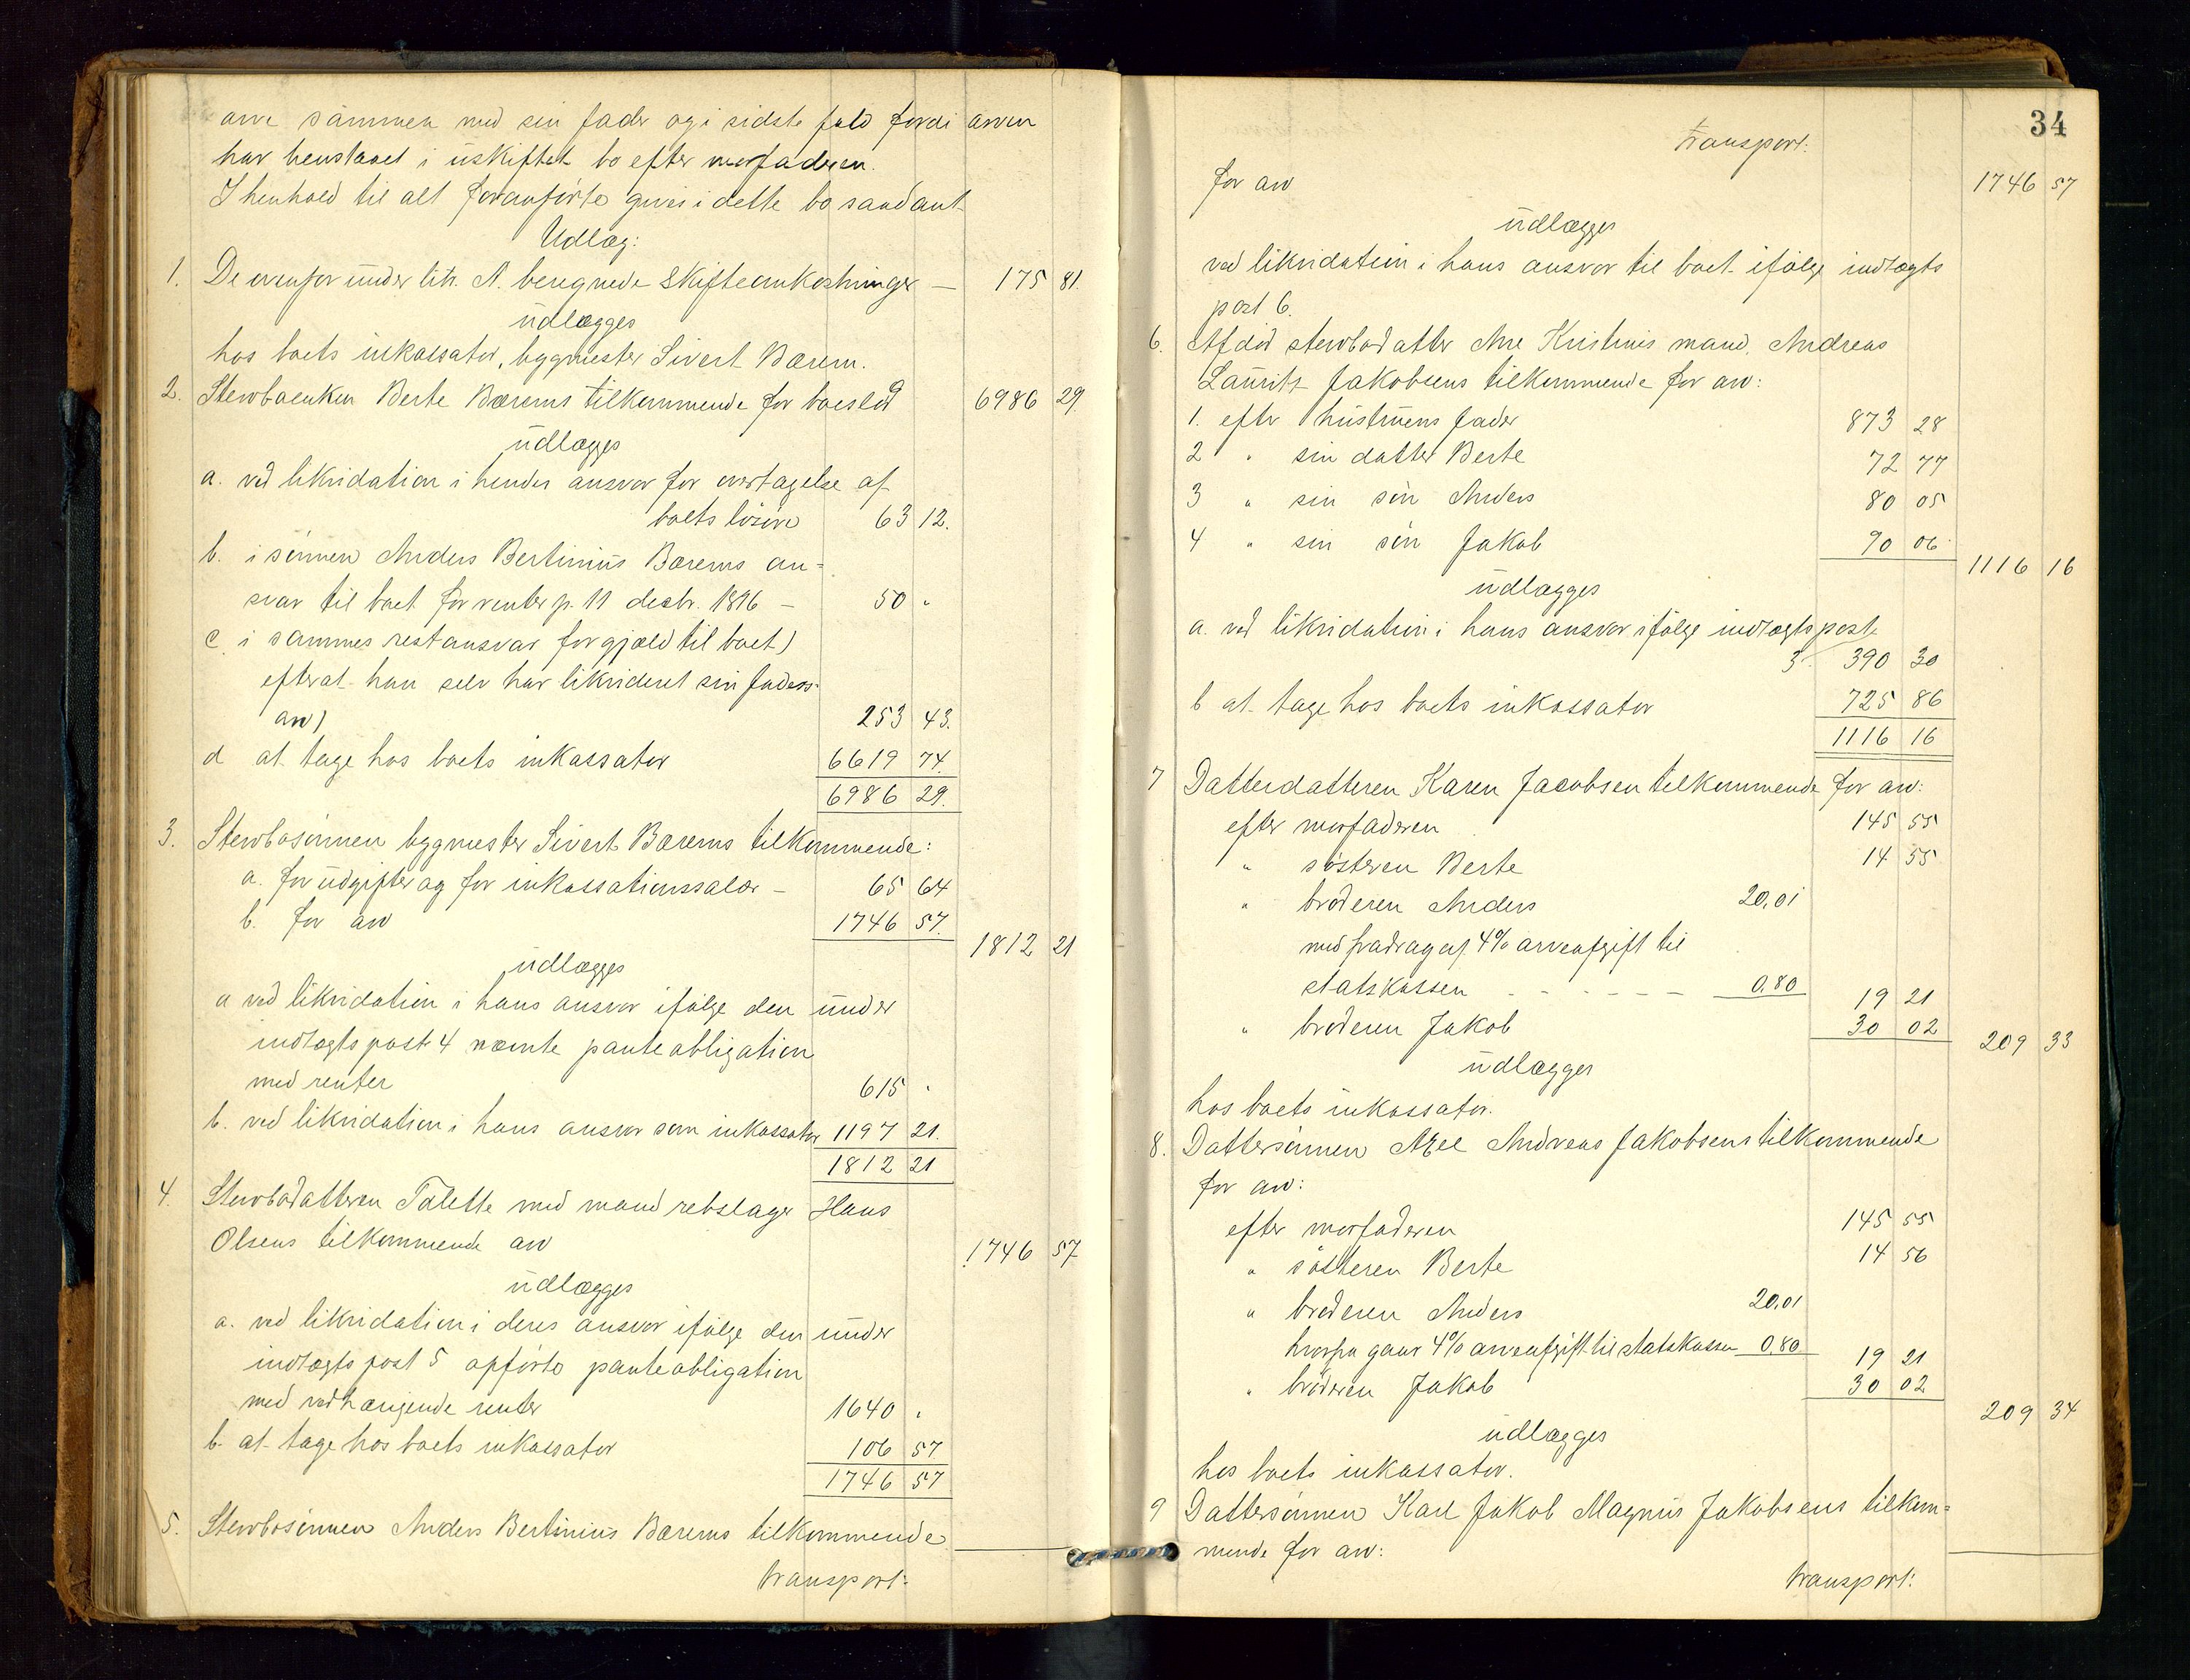 arve sammen med sin fader og i sidste fald fordi arven
har henstaaet i uskiftet bo efter morfaderen.
I henhold til alt foranførte gives i dette bo saadant
Udlæg:
1. De ovenfor under litr. A. beregnede skifteomkostninger — 175 81.
udlægges
hos boets inkassator, bygmester Sivert Bærem.
2. Stervboenken Berte Bærems tilkommende for boeslod 6986 29.
udlægges
a. ved likvidation i hendes ansvar for overtagelse af
boets løsøre 63 12.
b. i sønnen Anders Bertinius Bærems an=
svar til boet for renter p. 11 decbr. 1896 — 50 "
c. i sammes restansvar for gjæld til boet)
efterat han selv har likvideret sin faders=
arv) 253 43.
d at tage hos boets inkassator 6619 74.
6986 29.
3. Stervbosønnen bygmester Sivert Bærems tilkommende:
a. for udgifter og for inkassationssalær — 65 64
b. for arv 1746 57.
1812 21
udlægges
a ved likvidation i hans ansvar ifølge den under
indtægtspost 4 nævnte panteobligation
med renter 615 "
b. ved likvidation i hans ansvar som inkassator 1197 21.
1812 21
4. Stervbodatteren Talette med mand rebslager Hans
Olsens tilkommende arv 1746 57
udlægges
a. ved likvidation i deres ansvar ifølge den under
indtægtspost 5 opførte panteobligation
med vedhængende renter 1640 "
b. at tage hos boets inkassator 106 57
1746 57
5. Stervbosønnen Anders Bertinius Bærems tilkommende
transport:
34
transport:
for arv 1746 57
udlægges
ved likvidation i hans ansvar til boet ifølge indtægts
post 6.
6. Afdød stervbodatter Ane Kristines mand, Andreas
Lauritz Jakobsens tilkommende for arv:
1. efter hustruens fader 873 28
2 " sin datter Berte 72 77
3 " sin søn Anders 80 05
4 " sin søn Jakob 90 06
1116 16
udlægges
a. ved likvidation i hans ansvar ifølge indtægtspost
3. 390 30
b at tage hos boets inkassator 725 86
1116 16
7 Datterdatteren Karen Jacobsen tilkommende for arv:
efter morfaderen 145 55
" søsteren Berte 14 55
" broderen Anders 20,01
med fradrag af 4% arveafgift til
statskassen - - - - - - 0,80 19 21
" broderen Jakob 30 02
209 33
udlægges
hos boets inkassator.
8. Dattersønnen Axel Andreas Jakobsens tilkommende
for arv:
efter morfaderen 145 55
" søsteren Berte 14 56
" broderen Anders 20,01
hvorfra gaar 4% arveafgift til statskassen 0,80 19 21
" broderen Jakob 30 02
209 34
udlægges
hos boets inkassator.
9 Dattersønnen Karl Jakob Magnus Jakobsens tilkom=
mende for arv:
transport: